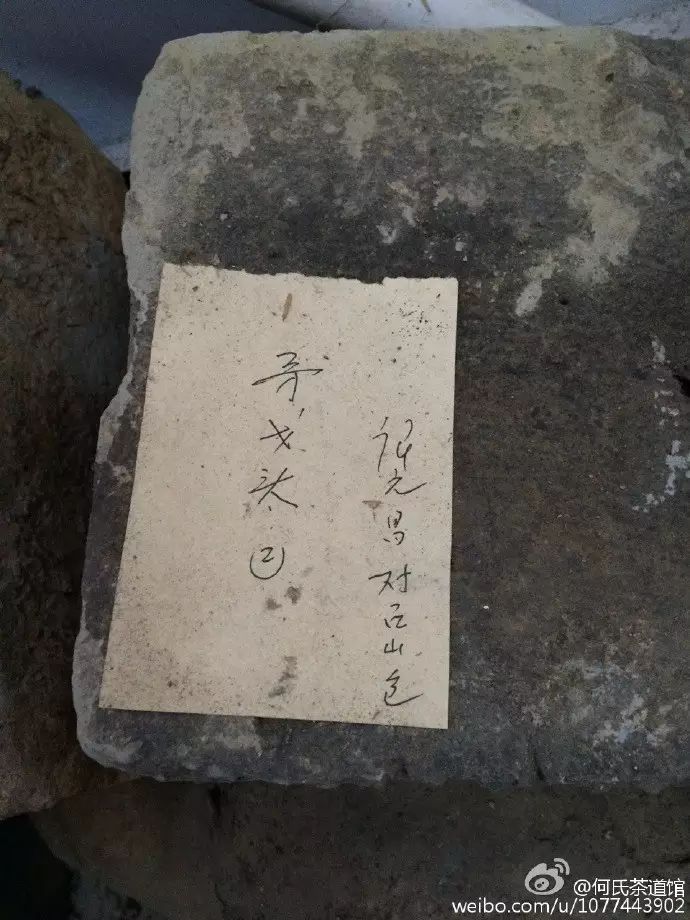 光昌对后山包
弄戈头②
@何氏茶道馆
weibo.com/u/1077443902